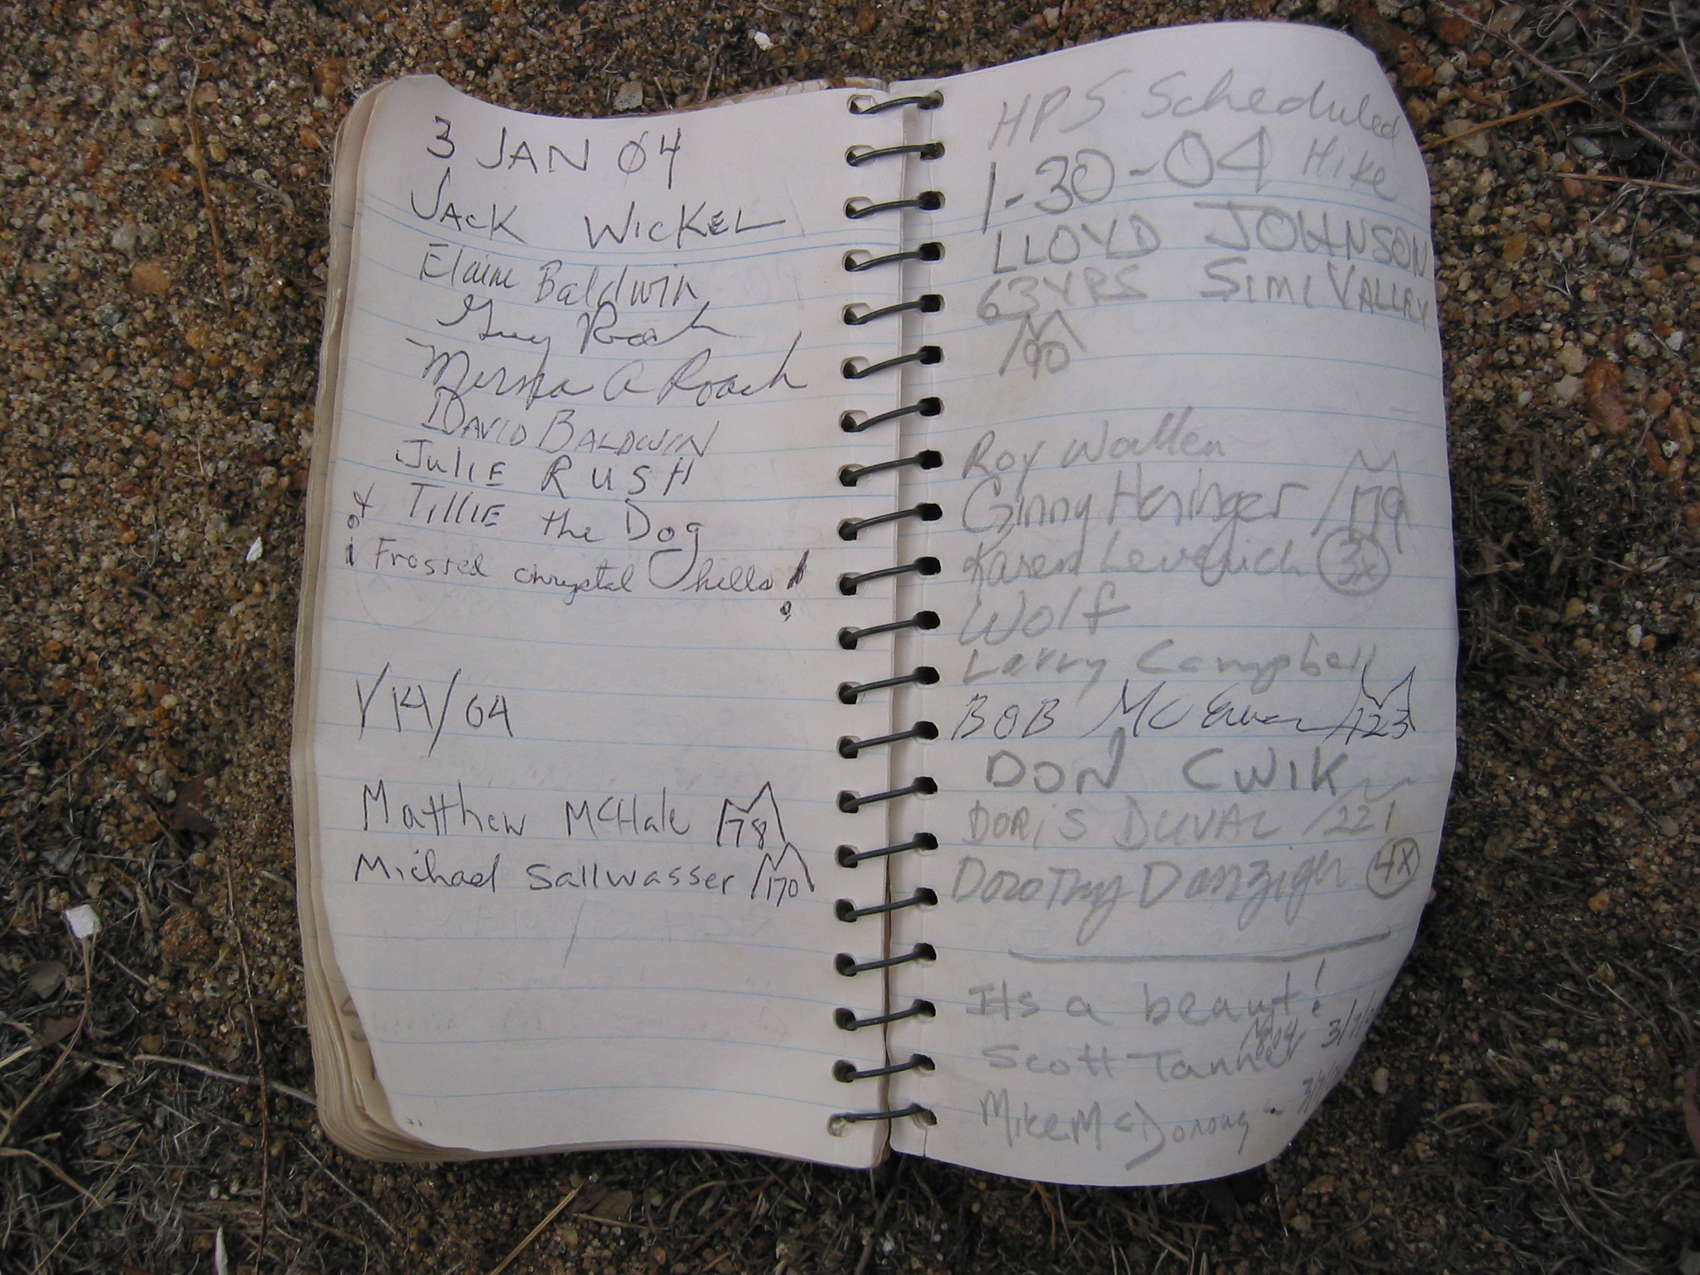 3 JAN 04
JACK WICKEL
Elaine Baldwin
Guy Roach
Myrna A Roach
DAVID BALDWIN
JULIE RUSH
& TILLIE the Dog
¡ Frosted chrystal hills!
1/14/04
Matthew McHale 78
Michael Sallwasser 170
HPS Scheduled
1-30-04 Hike
LLOYD JOHNSON
63YRS SIMI VALLEY
90
Roy Wallen
Ginny Heringer 179
Karen Leverich 3x
Wolf
Larry Campbell
BOB McEwen 123
DON CWIK
DORIS DUVAL 221
Dorothy Danziger 4x
Its a beaut!
Scott Tanner
Mike McDonoug